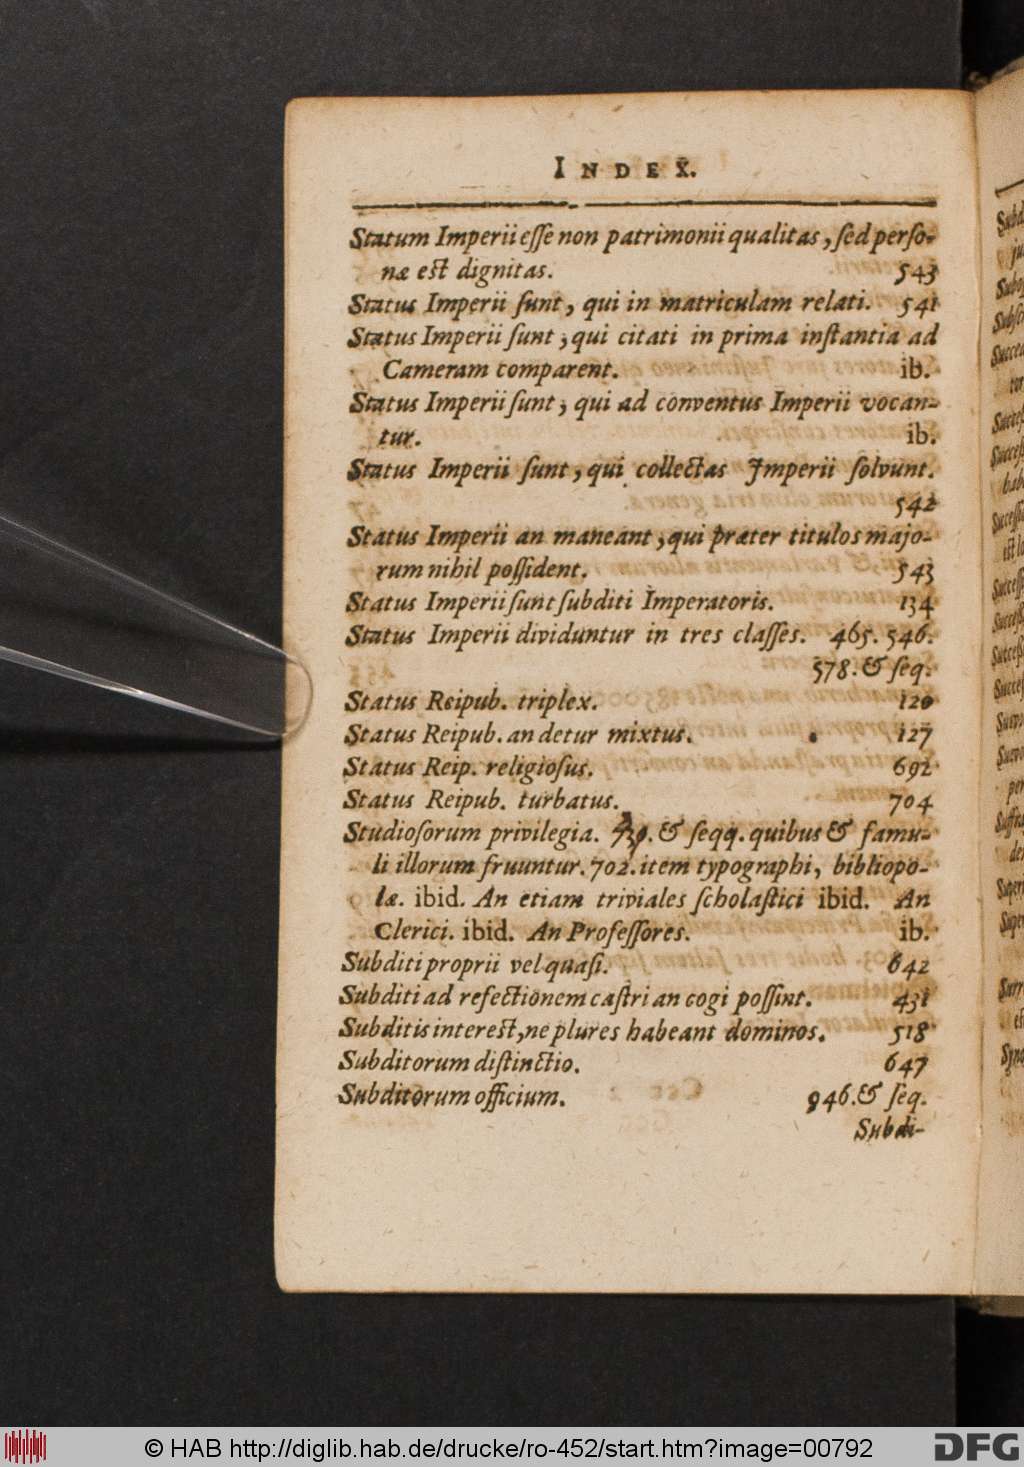 INDEX.
Statum Imperii eſſe non patrimonii qualitas, ſed perſo-
næ eſt dignitas. 543
Status Imperii ſunt, qui in matriculam relati. 541
Status Imperii ſunt, qui citati in prima inſtantia ad
Cameram comparent. ib.
Status Imperii ſunt, qui ad conventus Imperii vocan-
tur. ib.
Status Imperii ſunt, qui collectas Imperii ſolvunt.
542
Status Imperii an maneant, qui præter titulos majo-
rum nihil poſſident. 543
Status Imperii ſunt ſubditi Imperatoris. 134
Status Imperii dividuntur in tres claſſes. 465. 546.
578. & ſeq.
Status Reipub. triplex. 120
Status Reipub. an detur mixtus. 127
Status Reip. religioſus. 692
Status Reipub. turbatus. 704
Studioſorum privilegia. & ſeqq. quibus & famu-
li illorum fruuntur. 702. item typographi, bibliopo-
læ. ibid. An etiam triviales ſcholaſtici ibid. An
Clerici. ibid. An Profeſſores. ib.
Subditi proprii vel quaſi. 642
Subditi ad refectionem caſtri an cogi poſſint. 431
Subditis intereſt, ne plures habeant dominos. 518
Subditorum diſtinctio. 647
Subditorum officium. 946. & ſeq.
Subdi-
© HAB http://diglib.hab.de/drucke/ro-452/start.htm?image=00792
DFG